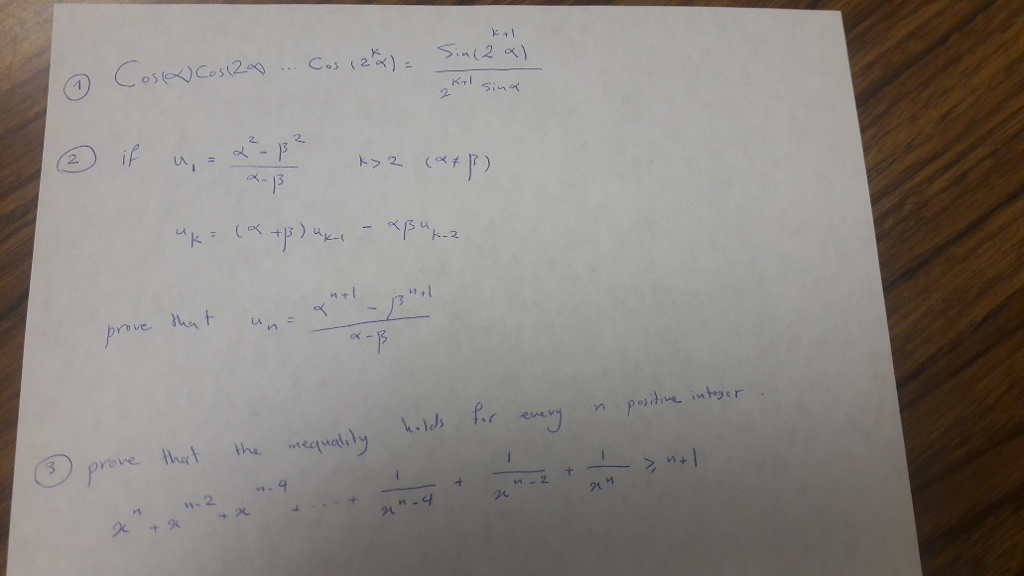 ① Cos(α)Cos(2α ... Cos (2^k α) = Sin(2^{k+1} α) / 2^{k+1} Sinα
② if u₁ = (α² - β²) / (α-β) k>2 (α≠β)
u_k = (α+β) u_{k-1} - αβ u_{k-2}
prove that u_n = (α^{n+1} - β^{n+1}) / (α-β)
③ prove that the inequality holds for every n positive integer.
x^n + x^{n-2} + x^{n-4} + ... + 1/x^{n-4} + 1/x^{n-2} + 1/x^n ≥ n+1